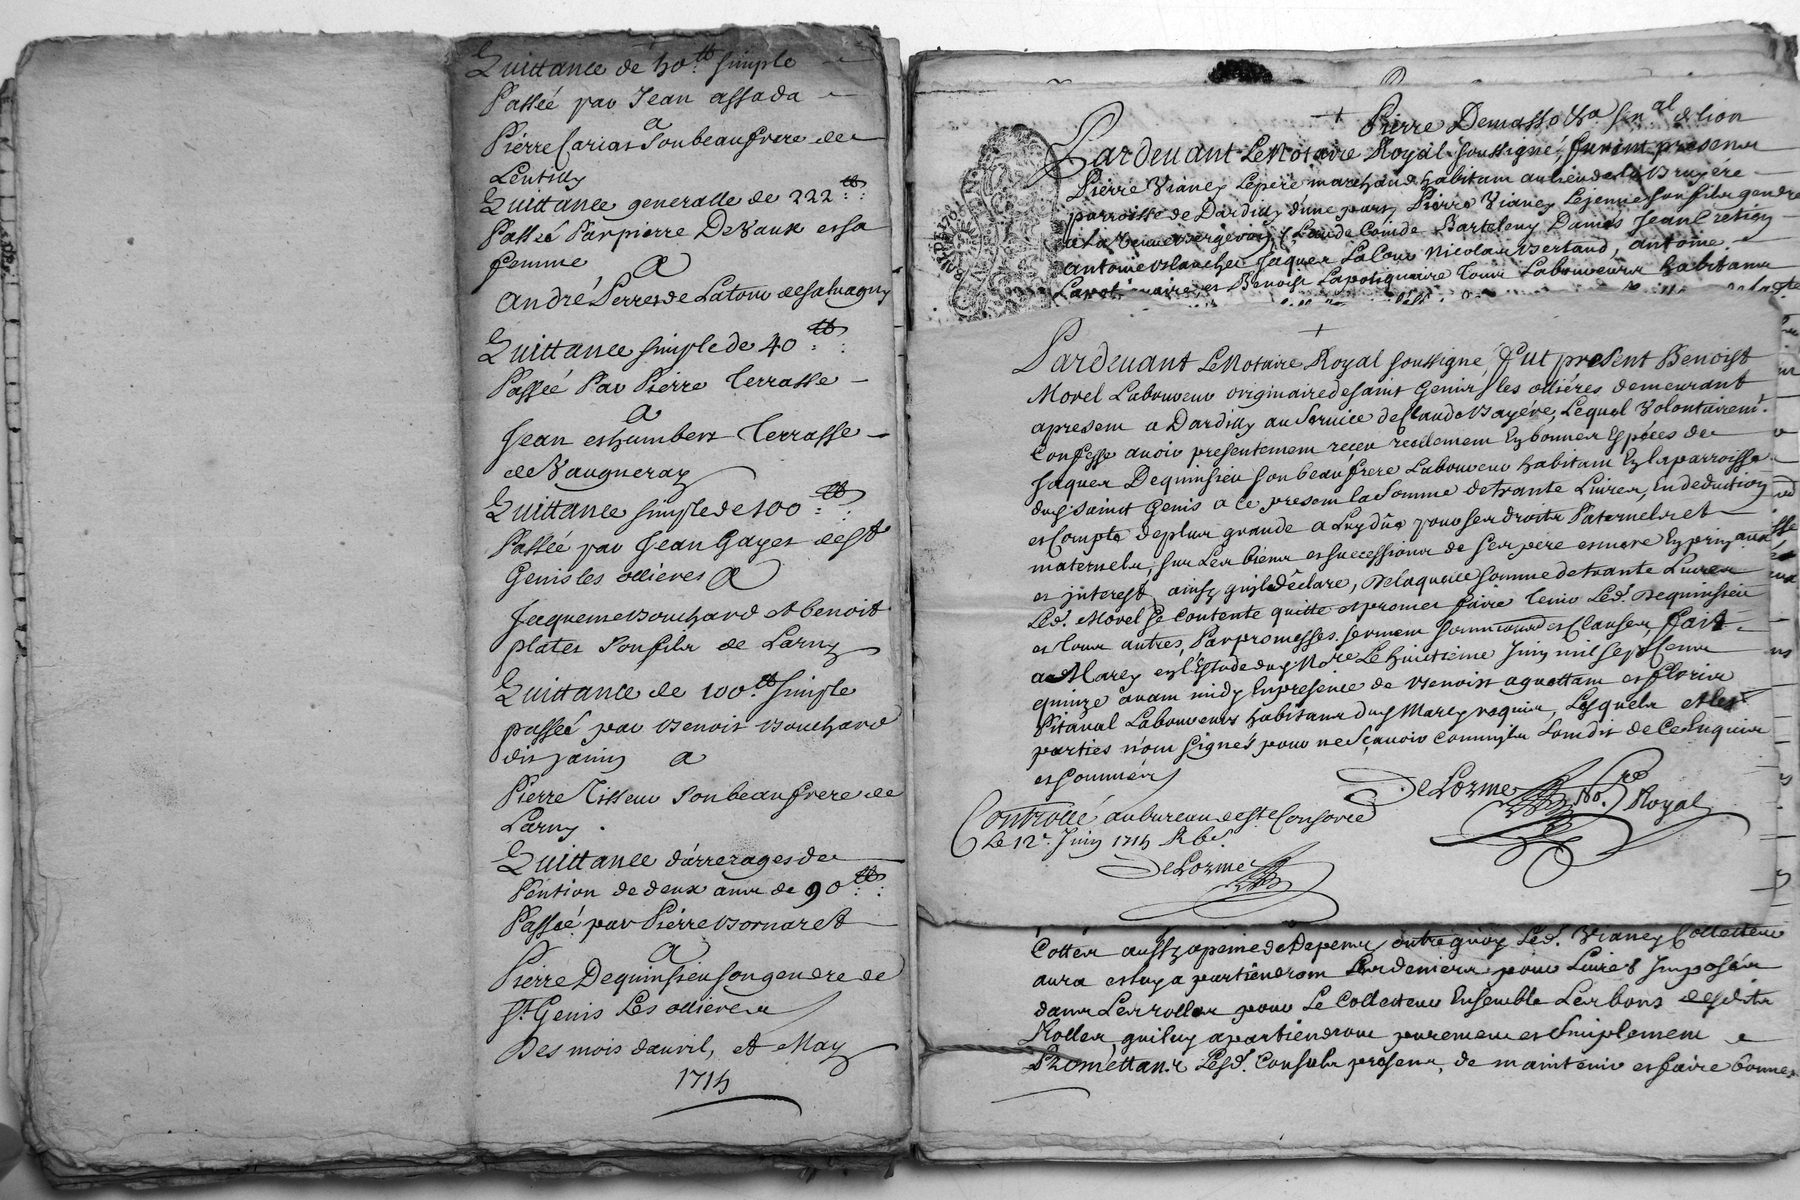 Quittance de 50 tt simple
Passée par Jean assada
a
Pierre Cariat son beau frere de
Lentilly
Quittance generalle de 222 tt
Passée Par pierre DeVaux et sa
femme a
André Perret de Latour de salvagny
Quittance simple de 40 tt
Passée Par Pierre Terrasse
a
Jean et humbert Terrasse
de Vaugneray
Quittance simple de 100 tt
Passée par Jean Gayet de St
Genis les ollieres a
Jacqueme Bouchard et benoit
plater son fils de Larny
Quittance de 100 tt simple
passée par Benoit Bouchard
dit janin a
Pierre Tisseur son beau frere de
Larny.
Quittance d'arrerages de
Pention de deux ans de 90 tt
Passée par Pierre Bornaret
a
Pierre Dequinsieu son gendre de
St Genis Les ollieres
Des mois d'auril, et May
1715
Pierre Demasso sen.al de lion
Pardeuant Le Notaire Royal soussigné, furent presens
Pierre Vianey Le pere marchand habitant au lieu de la Bruyere
parroisse de Dardilly d'une part, Pierre Vianey Le jeune son fils gendre
a la Claude Comde Bartelemy Damas Jean Cretin
Antoine Blanchet Jaques LaCour Nicolas Bertaud, antoine
et Benoist Lapotiquaire tous Laboureurs habitans
Pardeuant Le Notaire Royal soussigné, fut present Benoist
Morel Laboureur originaire de saint Genis les ollières demeurant
apresent a Dardilly au seruice de Claude Bayére, Lequel Volontairemt.
Confesse auoir presentement receu reellement En bonnes Espéces de
Jaques Dequinsieu son beau frere Laboureur habitant En la parroisse
dud saint Genis a ce present la somme de trante Liures, En deduction
et Compte de plus grande a Luy dûe pour ses droits Paternels et
maternels, sur Les biens et successions de ses pére et mere En principaux
et interest, ainsy qu'il déclare, De laquelle somme de trante Liures
Led. Morel se Contente quitte et promet faire tenir Led. Dequinsieu
et tous autres, Par promesses serment soumissions et Clauses, fait
a Marcy en L'Estude dud No.re Le huitième Juin mil sept Cent
quinze auant midy En presence de Benoist aguettant et florin
Pitaual Laboureurs habitans dud Marcy requis, Lesquels et les
parties n'ont signés pour ne sçauoir Comm'ils L'ont dit de Ce Enquis
et sommés
DeLorme No.re Royal
Controllé au bureau de ste Consorce
Le 12e Juin 1715 R 6s
DeLorme
Cottes aussy a peine de depens, outre quoy Led. Vianey Collecteur
aura et luy a partiendront Les deniers pour Liures Imposés
dans Les rolles pour Le Collecteur Ensemble Les bons desdits
Rolles quiluy apartiendront purement et simplement
Promettant Lesd. Consuls presens, de maintenir et faire bonnes